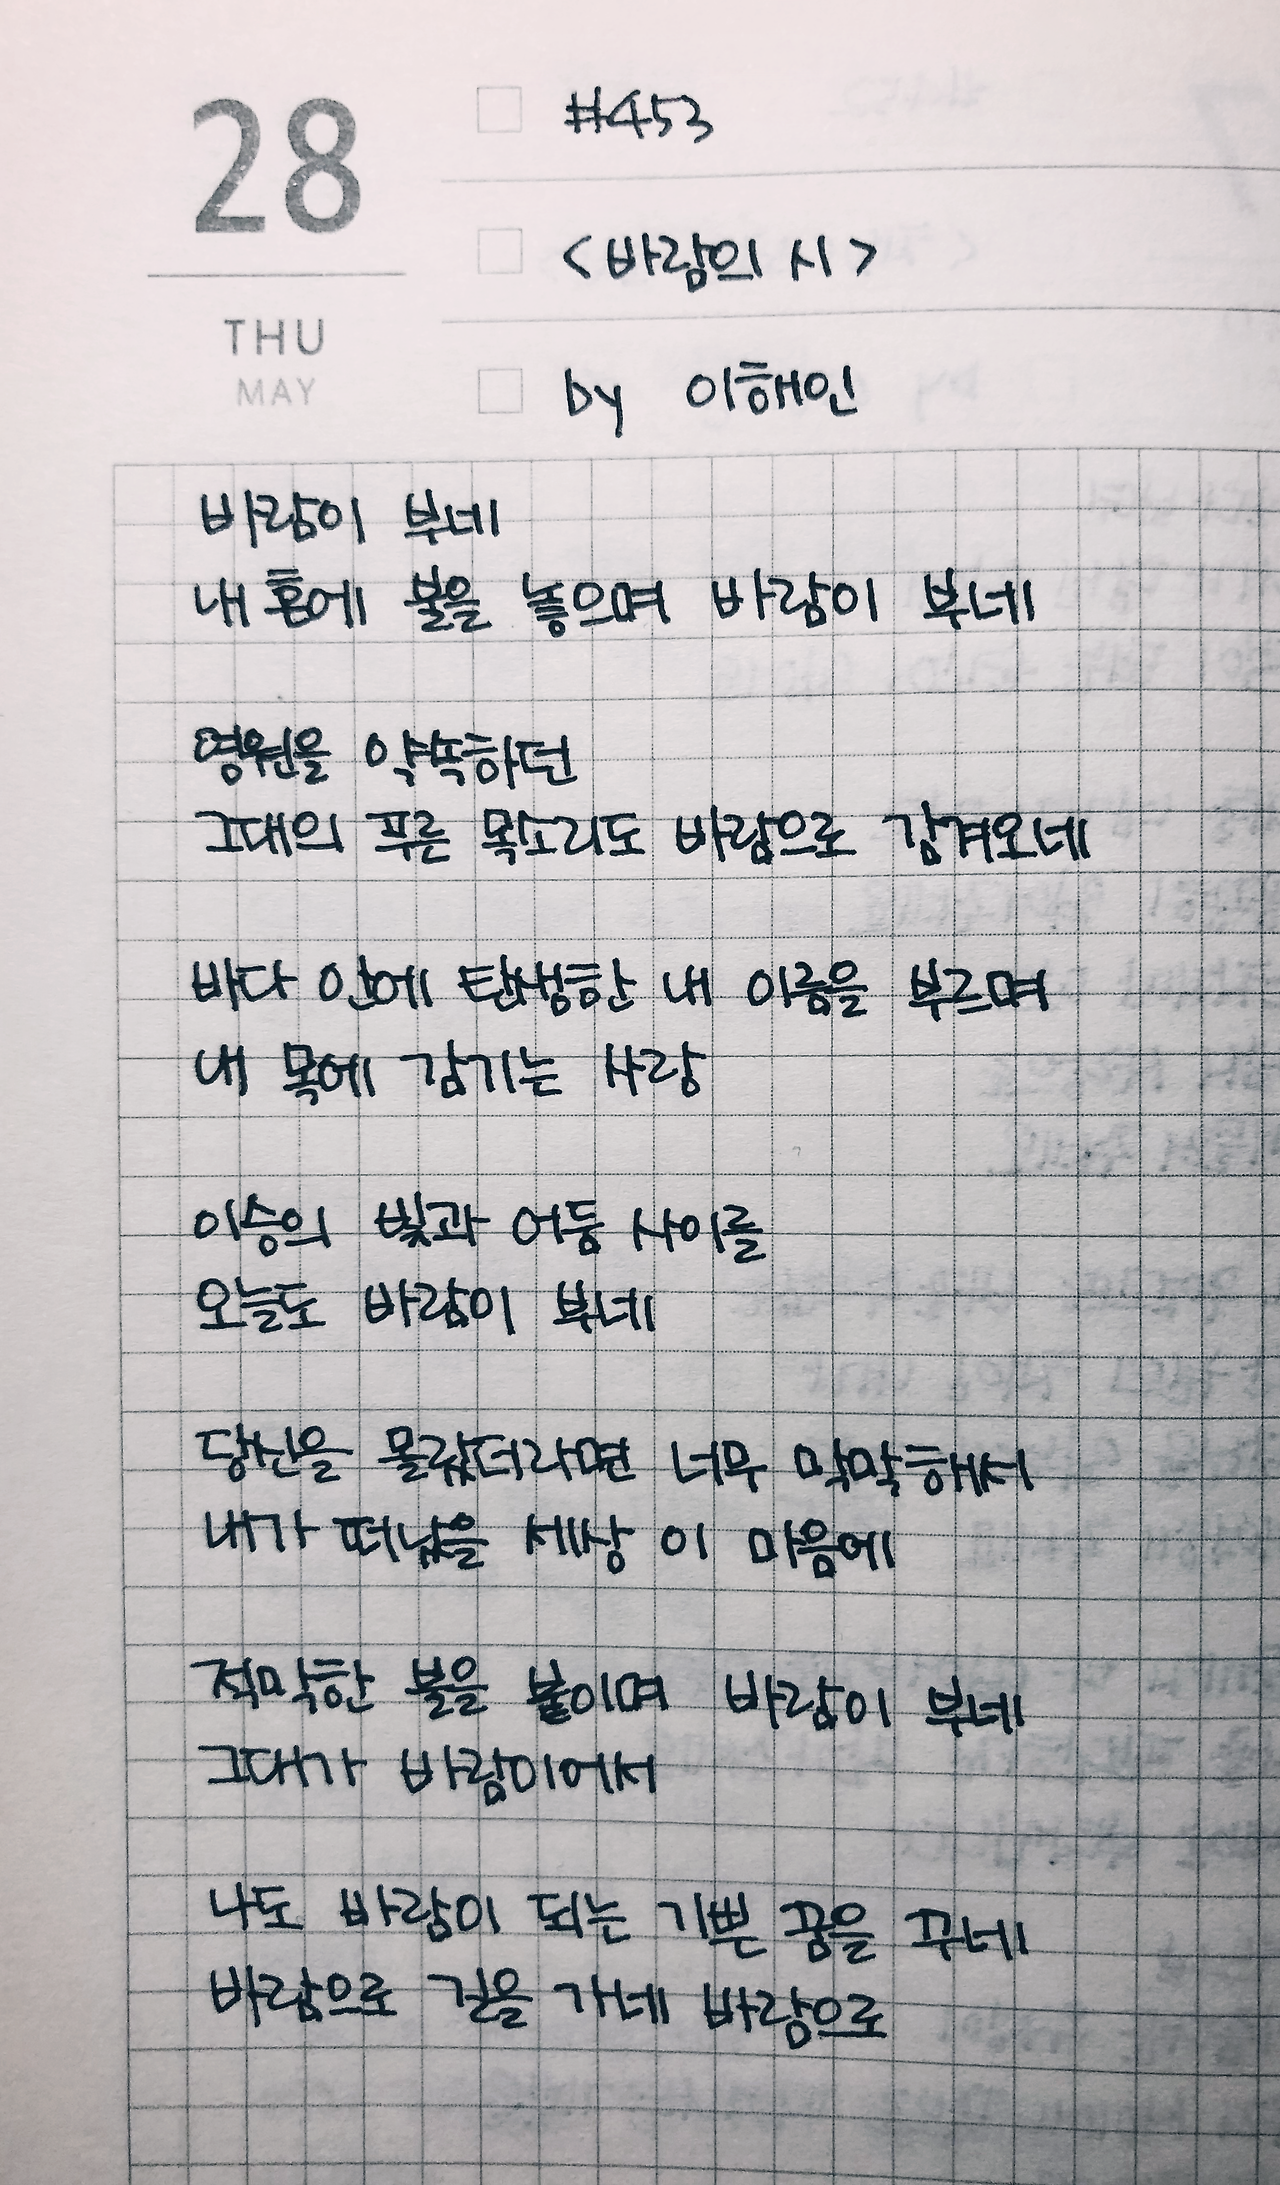 28
THU
MAY
#453
<바람의 시>
by 이해인
바람이 부네
내 혼에 불을 놓으며 바람이 부네
영원을 약속하던
그대의 푸른 목소리도 바람으로 감겨오네
바다 안에 탄생한 내 이름을 부르며
내 목에 감기는 사랑
이승의 빛과 어둠 사이를
오늘도 바람이 부네
당신을 몰랐더라면 너무 막막해서
내가 떠났을 세상 이 마음에
적막한 불을 붙이며 바람이 부네
그대가 바람이어서
나도 바람이 되는 기쁜 꿈을 꾸네
바람으로 길을 가네 바람으로